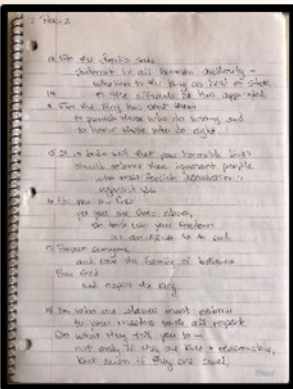 13 For the Lord's sake
submit to all human authority –
whether to the king as head of state,
14 or the officials he has appointed.
For the king has sent them
to punish those who do wrong and
to honor those who do right.
15 It is God's will that your honorable lives
should silence those ignorant people
who make foolish accusations
against you
16 You are free
yet you are God's slaves,
so don't use your freedom
as an excuse to do evil.
17 Respect everyone
and love the family of believers
Fear God
and respect the king.
18 You who are slaves must submit
to your masters with all respect
Do what they tell you to –
not only if they are kind + reasonable,
but even if they are cruel.